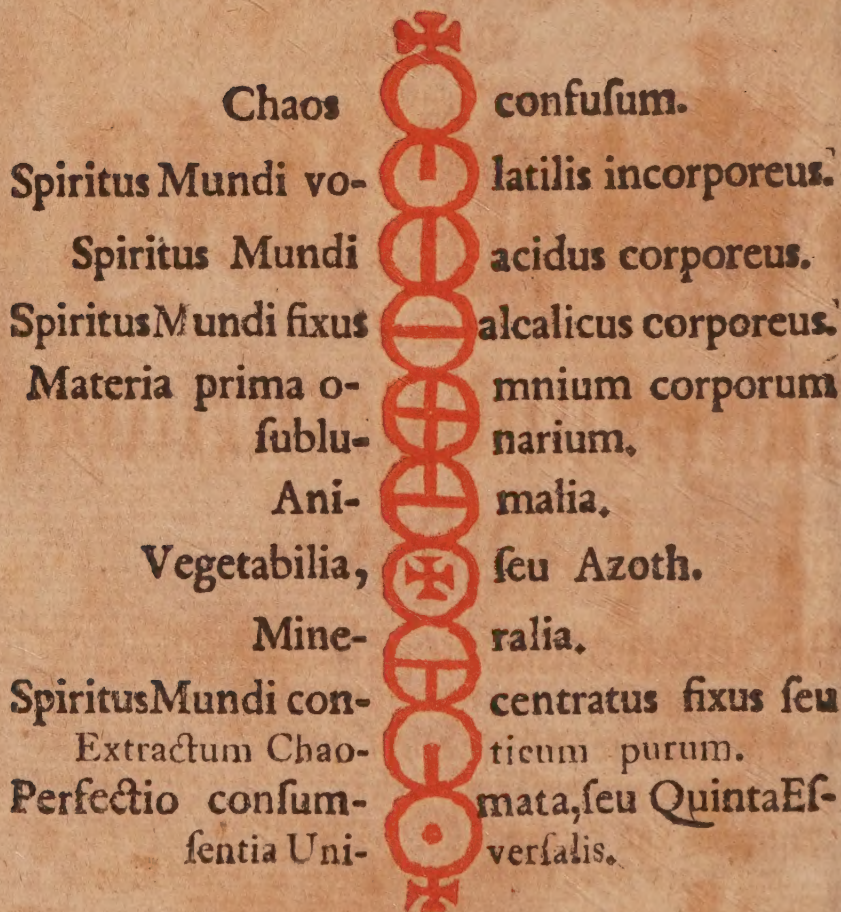 Chaos confuſum.
Spiritus Mundi vo- latilis incorporeus.
Spiritus Mundi acidus corporeus.
Spiritus Mundi fixus alcalicus corporeus.
Materia prima o- mnium corporum
ſublu- narium.
Ani- malia.
Vegetabilia, ſeu Azoth.
Mine- ralia.
Spiritus Mundi con- centratus fixus ſeu
Extractum Chao- ticum purum.
Perfectio conſum- mata, ſeu Quinta Eſ-
ſentia Uni- verſalis.